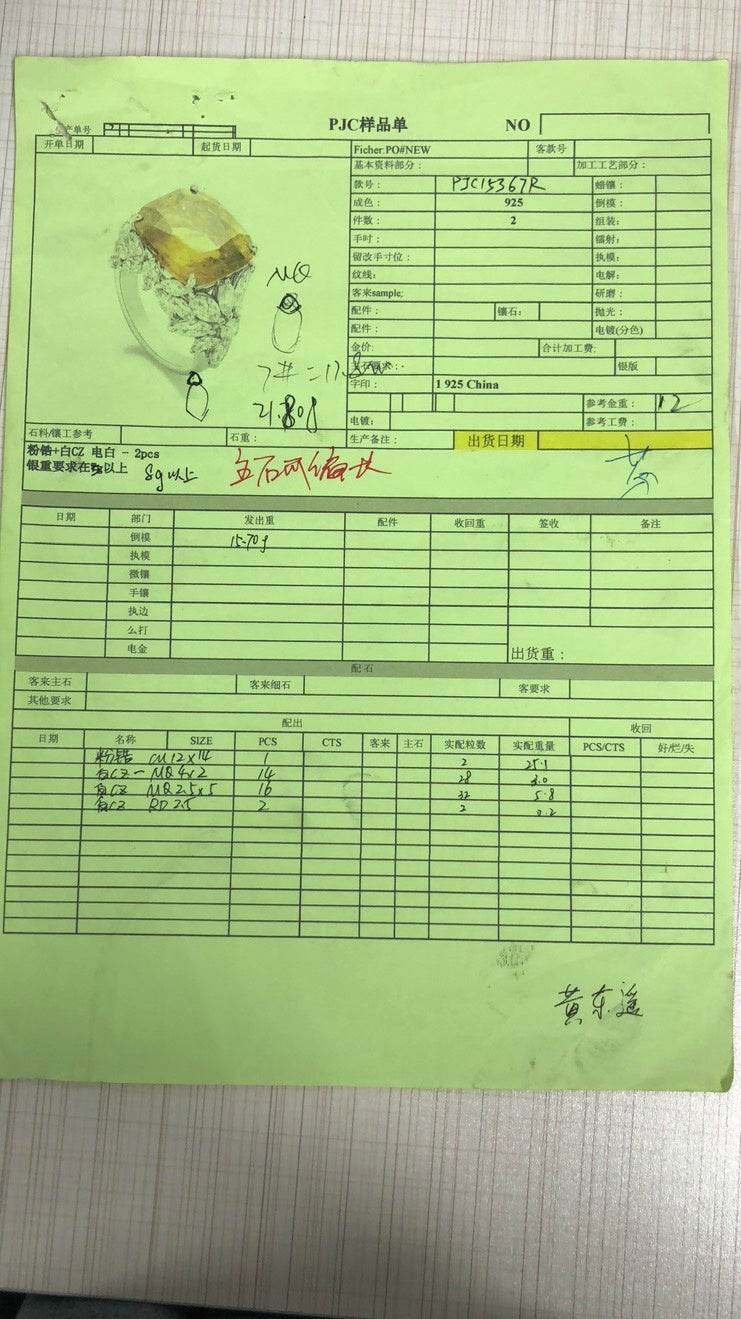 PJC样品单 NO
生产单号
开单日期 起货日期 Ficher:PO#NEW 客款号
基本资料部分： 加工工艺部分：
款号： PJC15367R 蜡镶：
成色： 925 倒模：
件数： 2 组装：
手时： 镭射：
留改手寸位： 执模：
纹线： 电解：
客来sample: 研磨：
配件： 镶石： 抛光：
配件： 电镀(分色)
金价: 合计加工费:
银版
字印： 1 925 China
参考金重： 12
电镀： 参考工费：
MQ
7# =11.8
21.80g
石料/镶工参考 石重： 生产备注： 出货日期
粉锆+白CZ 电白 - 2pcs
银重要求在 以上 8g以上
主石
日期 部门 发出重 配件 收回重 签收 备注
倒模 15.70g
执模
微镶
手镶
执边
么打
电金 出货重：
配石
客来主石 客来细石 客要求
其他要求
配出 收回
日期 名称 SIZE PCS CTS 客来 主石 实配粒数 实配重量 PCS/CTS 好/烂/失
粉锆 CU12×14 1 2 25.1
白CZ - MQ 4×2 14 28 3.0
白CZ MQ 2.5×5 16 32 5.8
白CZ RD 2.5 2 2 0.2
黄东遥